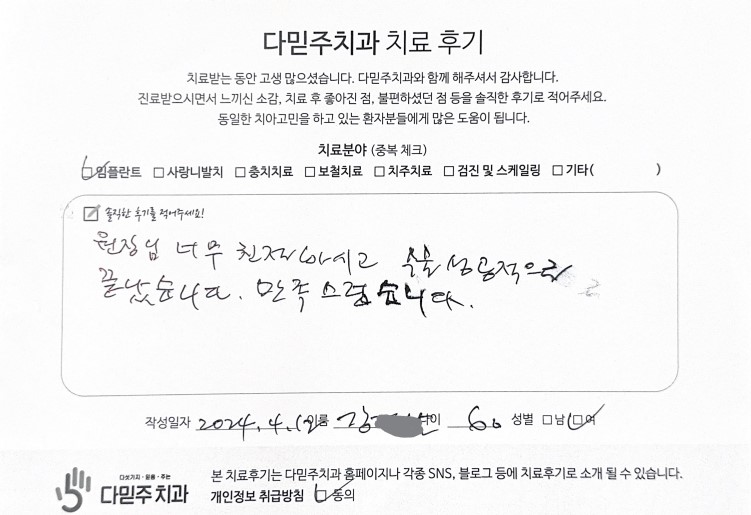 다믿주치과 치료 후기
치료받는 동안 고생 많으셨습니다. 다믿주치과와 함께 해주셔서 감사합니다.
진료받으시면서 느끼신 소감, 치료 후 좋아진 점, 불편하셨던 점 등을 솔직한 후기로 적어주세요.
동일한 치아고민을 하고 있는 환자분들에게 많은 도움이 됩니다.
치료분야 (중복 체크)
임플란트 □ 사랑니발치 □ 충치치료 □ 보철치료 □ 치주치료 □ 검진 및 스케일링 □ 기타( )
솔직한 후기를 적어주세요!
원장님 너무 친절하시고 수술 성공적으로
끝났습니다. 만족스럽습니다.
작성일자 2024.4.12 이름 강 나이 60 성별 □ 남 □ 여
다섯가지·믿음·주는
다믿주치과
본 치료후기는 다믿주치과 홈페이지나 각종 SNS, 블로그 등에 치료후기로 소개 될 수 있습니다.
개인정보 취급방침 □ 동의